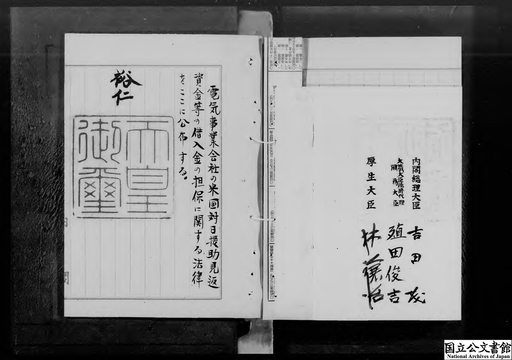 電気事業会社の米国対日援助見返
資金等の借入金の担保に関する法律
をここに公布する。
裕仁
天皇
御璽
内閣総理大臣
吉田茂
殖田俊吉
厚生大臣
林譲治
国立公文書館
National Archives of Japan